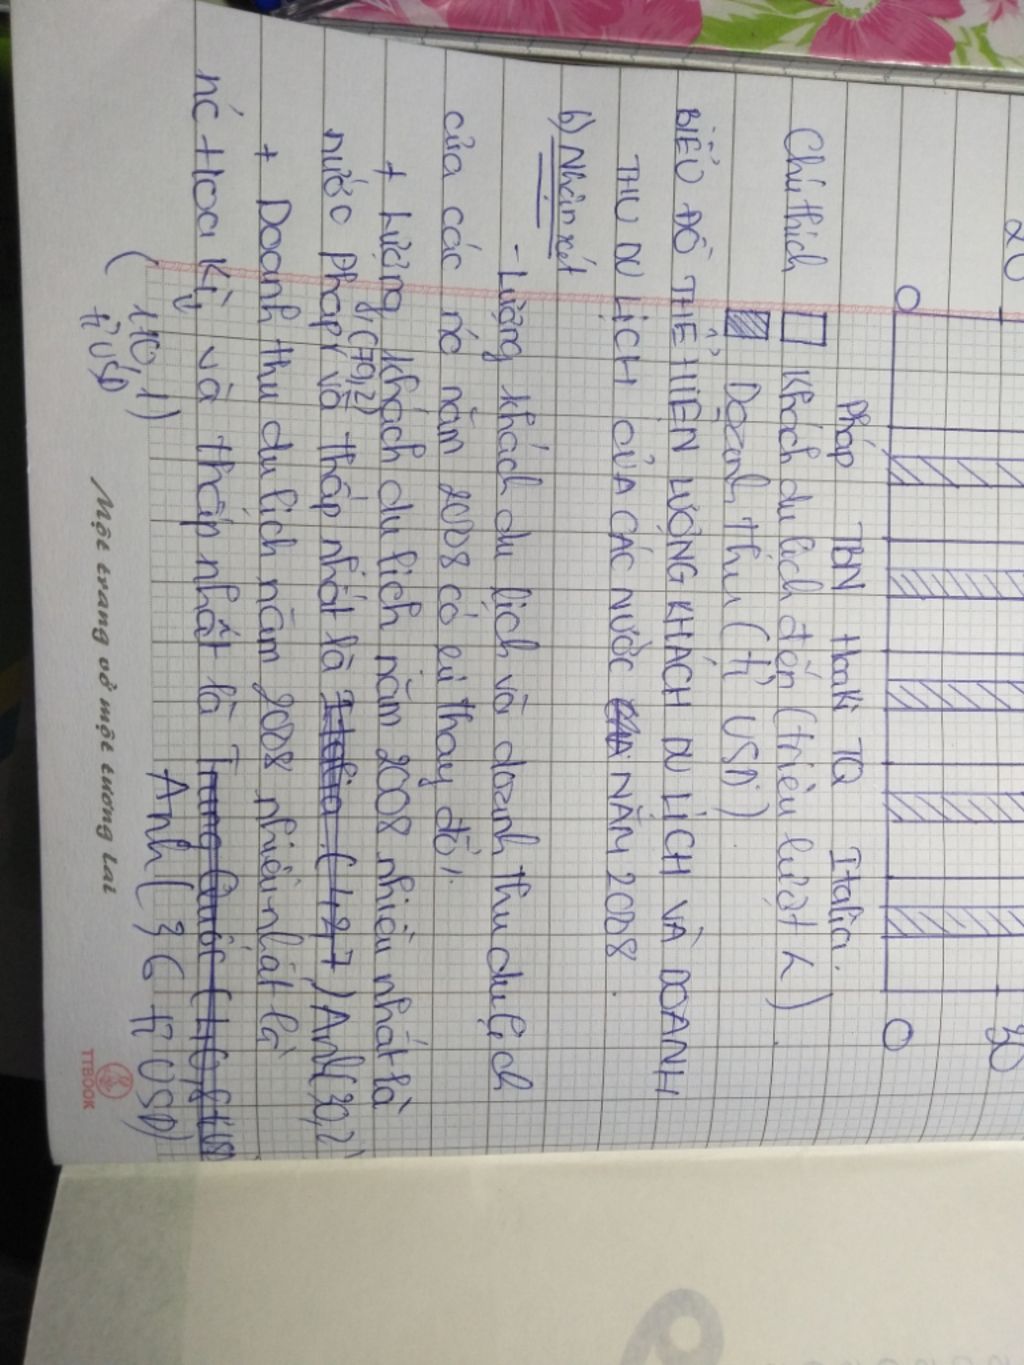 20
0
30
0
Pháp TBN Hoa Kì TQ Italia.
Chú thích Khách du lịch đến (triệu lượt )
Doanh thu (tỉ USD)
BIỂU ĐỒ THỂ HIỆN LƯỢNG KHÁCH DU LỊCH VÀ DOANH
THU DU LỊCH CỦA CÁC NƯỚC NĂM 2008.
b) Nhận xét
- Lượng khách du lịch và doanh thu du lịch
của các nc năm 2008 có sự thay đổi.
+ Lượng khách du lịch năm 2008 nhiều nhất là
nước Pháp (79,2) và thấp nhất là Italia (42,7) Anh(30,2)
+ Doanh thu du lịch năm 2008 nhiều nhất là
nc Hoa Kì, và thấp nhất là Trung Quốc (40,8 tỉ
(110,1) Anh (36 tỉ USD)
tỉ USD
Một trang vở một tương lai
TTBOOK